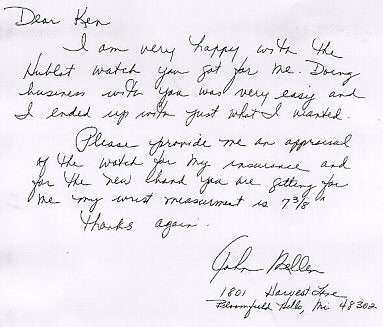 Dear Ken
I am very happy with the
Hublot watch you got for me. Doing
business with you was very easy and
I ended up with just what I wanted.
Please provide me an appraisal
of the watch for my insurance and
for the new band you are getting for
me my wrist measurment is 7 3/8"
Thanks again.
John Bellen
1801 Harvest Lane
Bloomfield Hills, Mi 48302